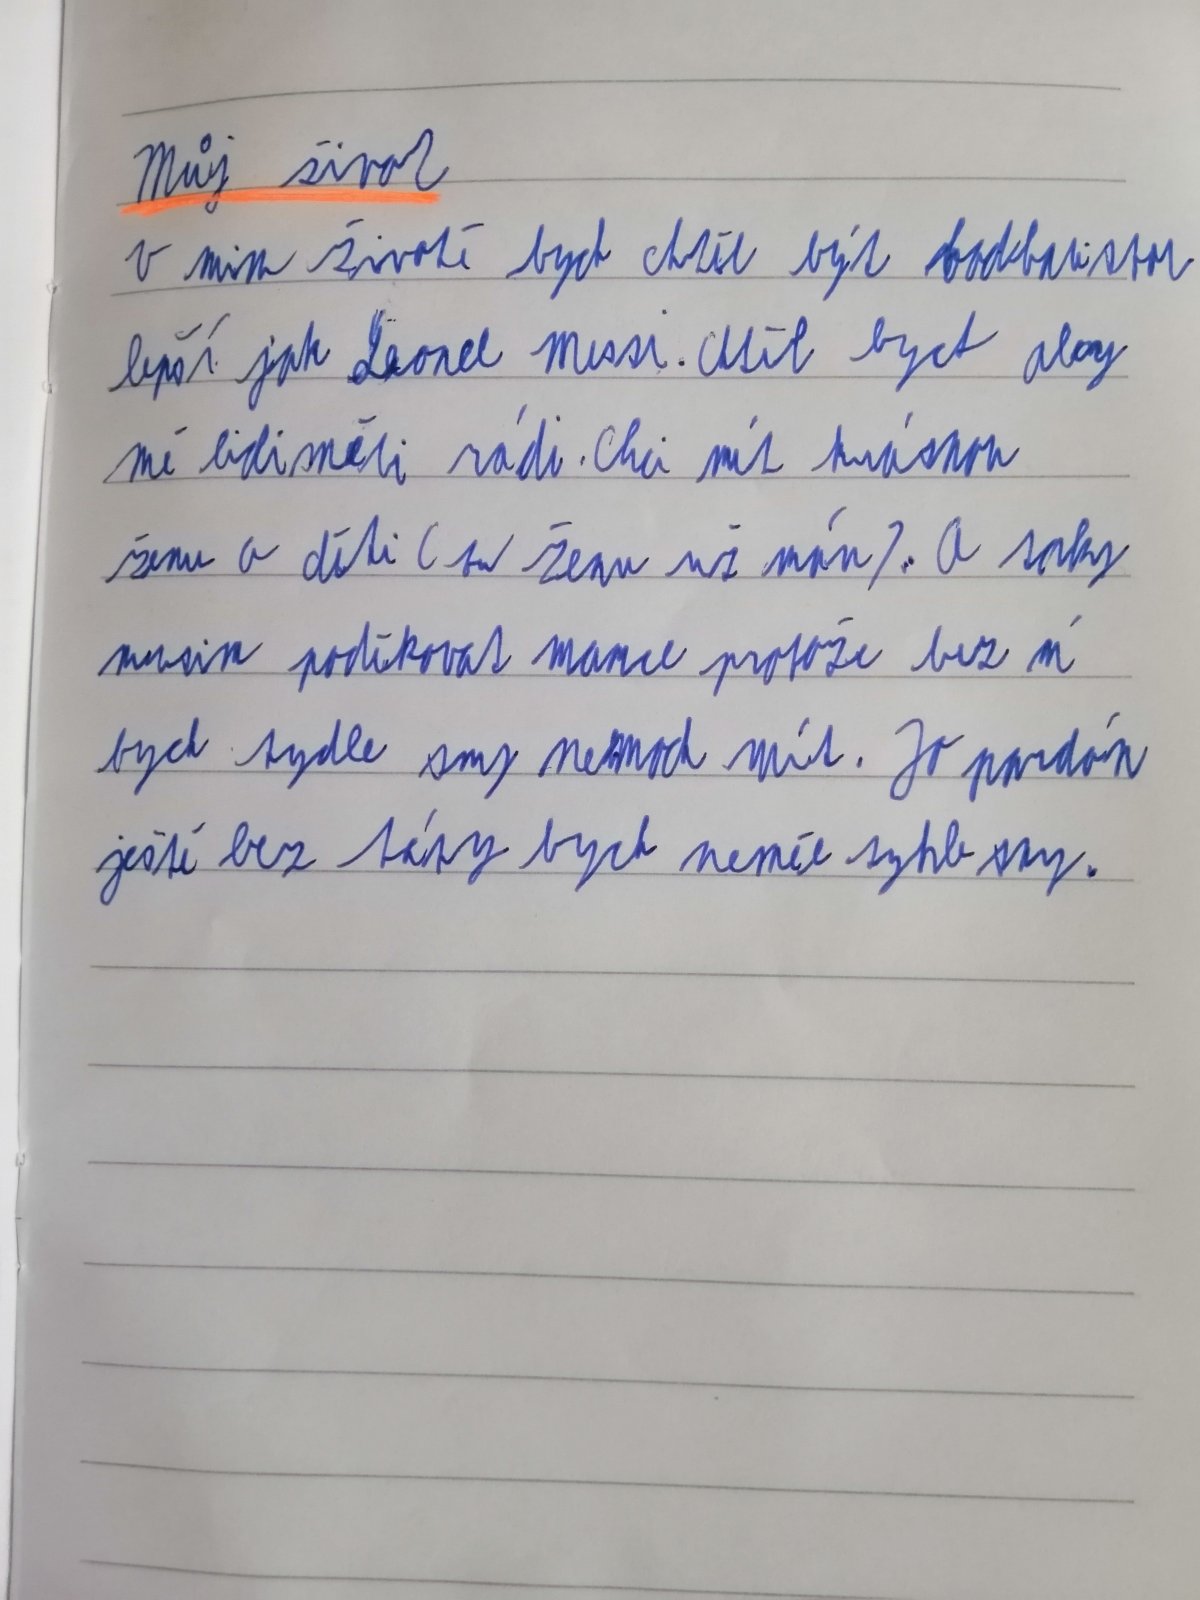 Můj život
V mím životě bych chtěl být fodbalistou
lepší jak Leonel Messi. Chtěl bych aby
mě lidi měli rádi. Chci mít krásnou
ženu a děti (tu ženu už mán). A taky
musím poděkovat mamce protože bez ní
bych tydle sny nemoch mít. Jo pardón
ještě bez táty bych neměl tyhle sny.